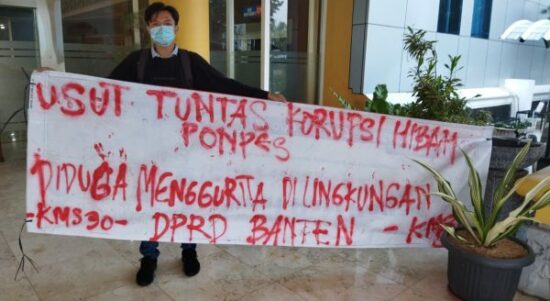 USUT TUNTAS KORUPSI HIBAH
PONPES
DIDUGA MENGGURITA DI LINGKUNGAN
-KMS30- DPRD BANTEN -KMS